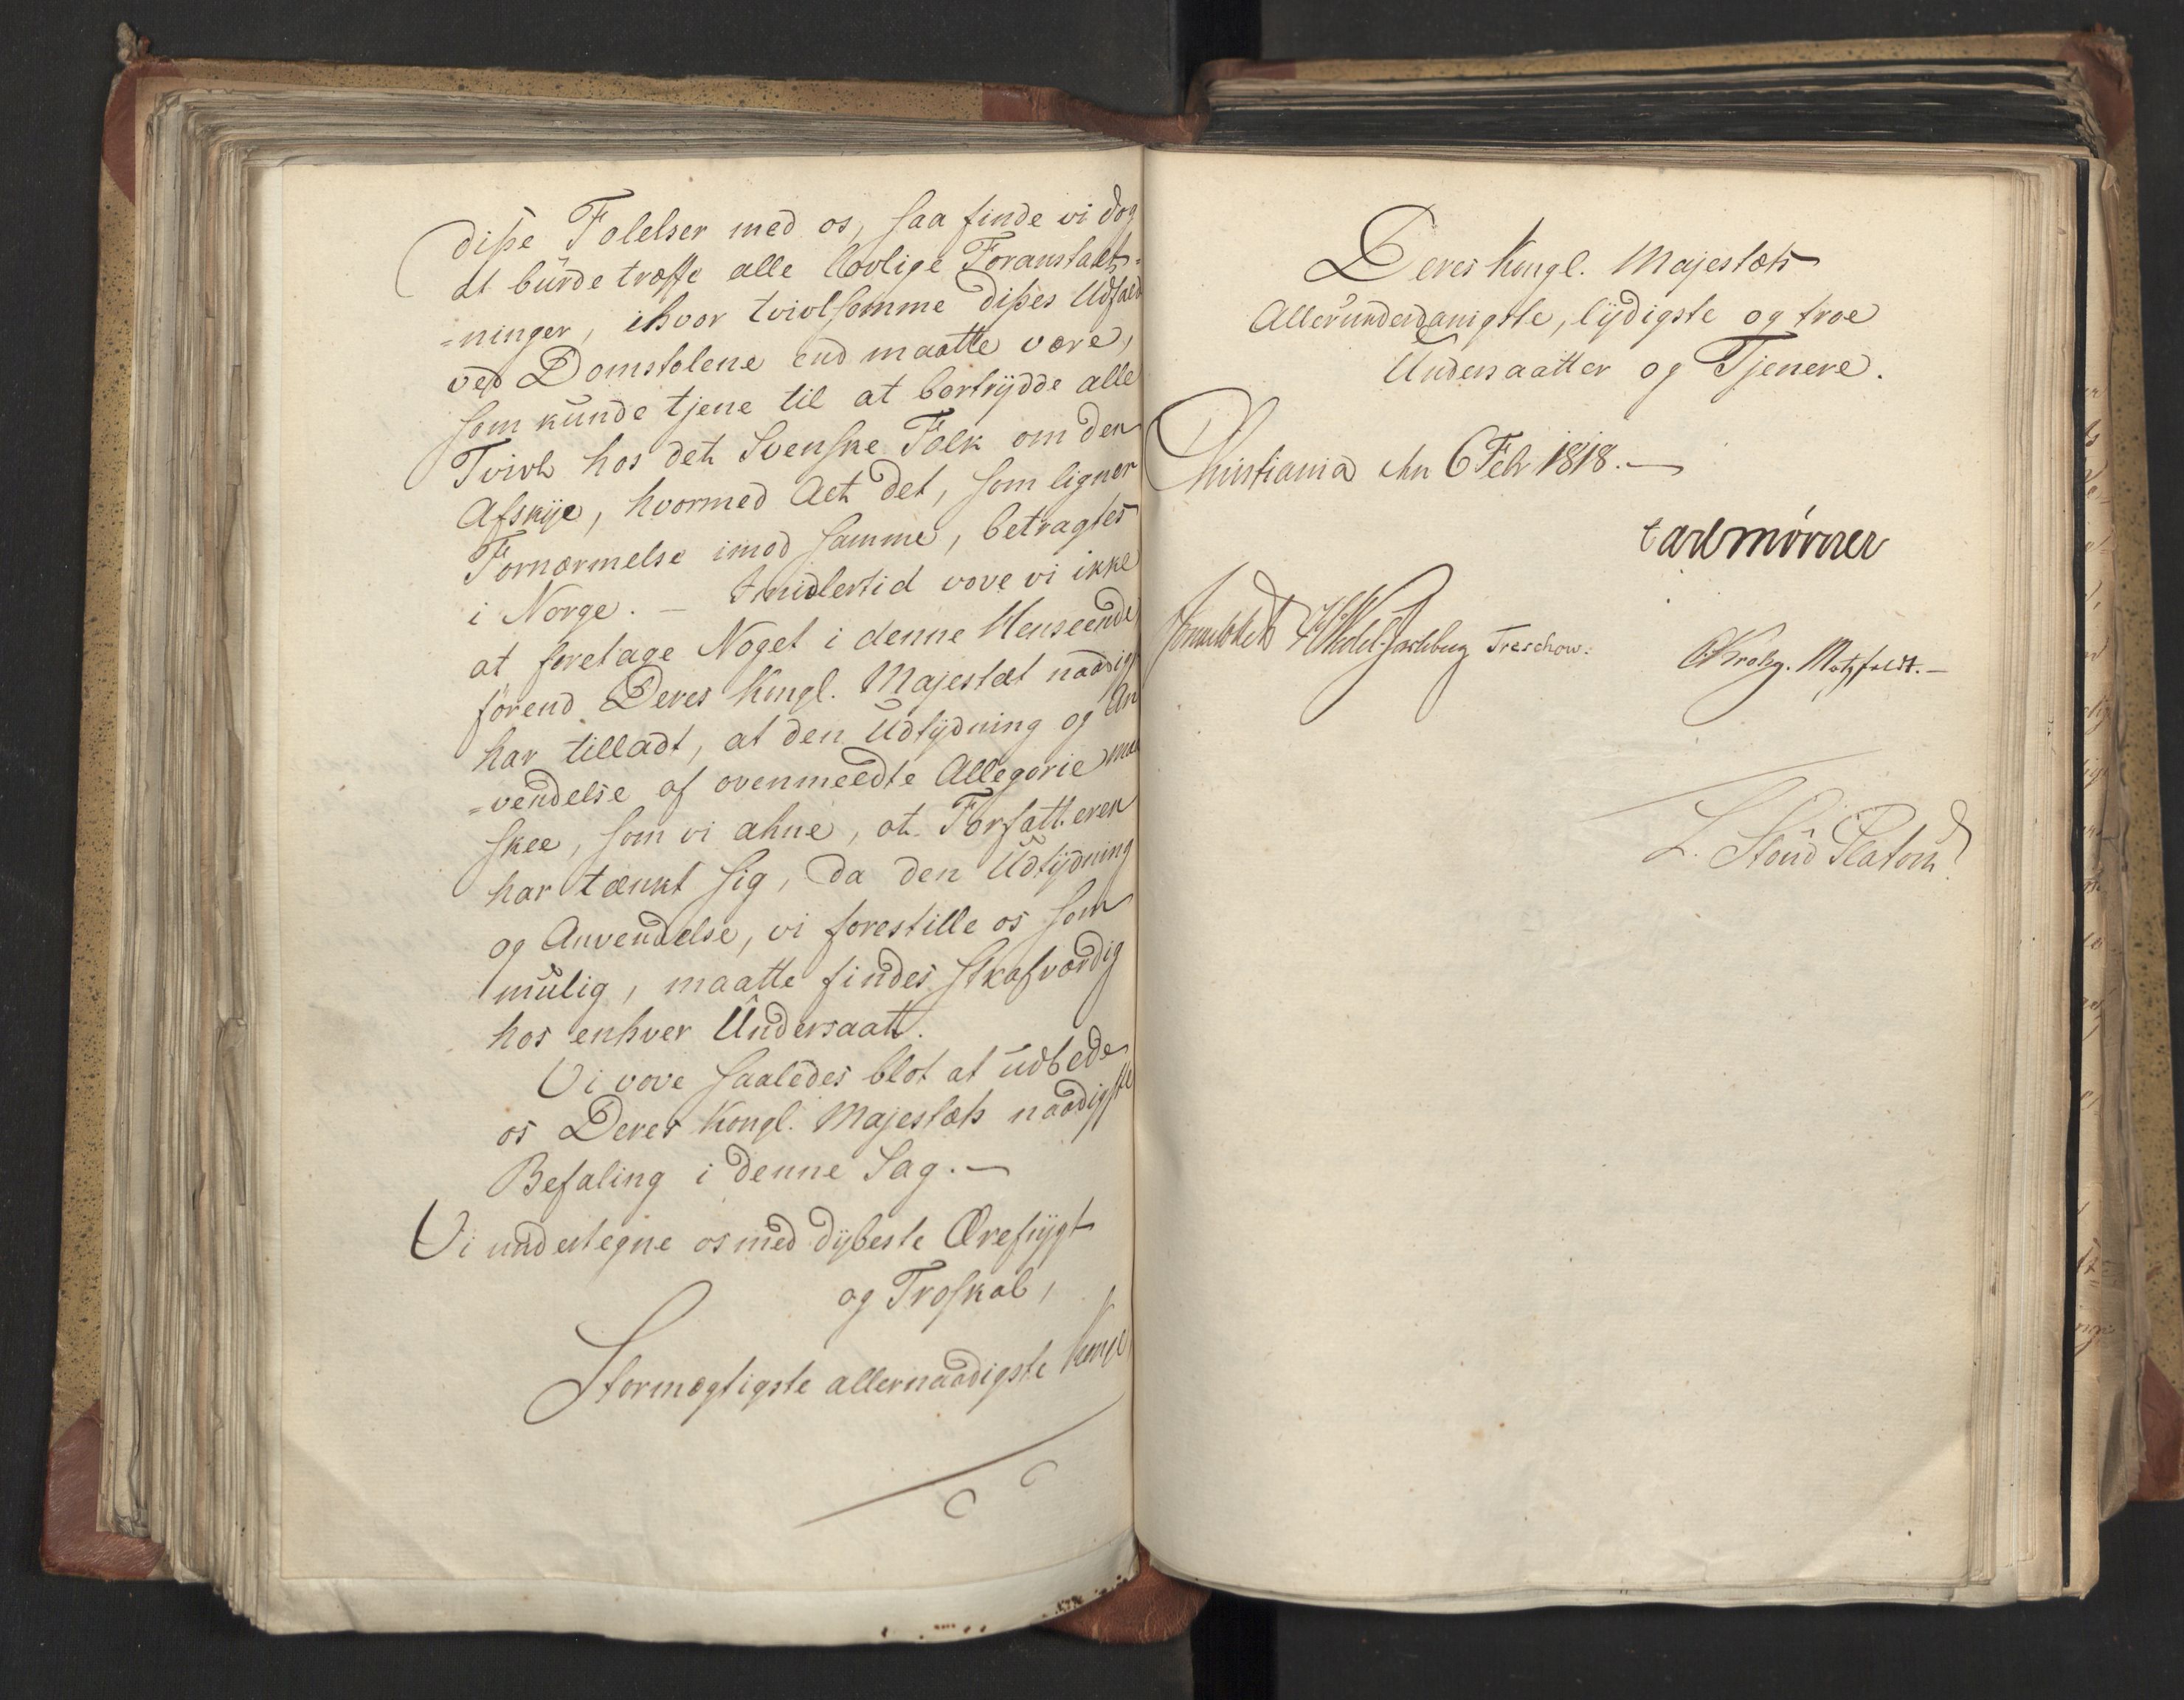 disse Følelser med os, saa finde vi dog
at burde træffe alle lovlige Foranstalt-
=ninger, ihvor tvivlsomme disses Udfald
ved Domstolene end maatte være,
som kunde tjene til at bortrydde alle
Tvivl hos det Svenske Folk om den
Afskye, hvormed Alt det, som ligner
Fornærmelse imod samme, betragtes
i Norge. — Imidlertid vove vi ikke
at foretage Noget i denne Henseende
førend Deres Kongl. Majestæt naadigst
har tilladt, at den Udtydning og An
=vendelse af ovenmeldte Allegorie maa
skee, som vi ahne, at Forfatteren
har tænkt sig, da den Udtydning
og Anvendelse, vi forestille os som
mulig, maatte findes strafværdig
hos enhver Undersaat.
Vi vove saaledes blot at udbede
os Deres Kongl. Majestæts naadigste
Befaling i denne Sag. —
Vi undertegne os med dybeste Ærefrygt
og Troskab,
Stormægtigste allernaadigste Konge
Deres Kongl. Majestæts
Allerunderdanigste, lydigste og troe
Undersaatter og Tjenere.
Christiania den 6 Febr 1818. —
Carl Mörner
Sommerhielm HWedel-Jarlsberg Treschow. CKrohg. Motzfeldt. —
L. Stoud Platou